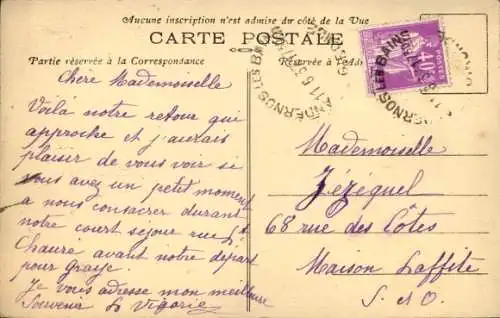 Aucune inscription n'est admise du côté de la Vue
CARTE POSTALE
Partie réservée à la Correspondance
Réservée à l'Ad
Chère Mademoiselle
Voilà notre retour qui
approche et j'aurais
plaisir de vous voir si
vous avez un petit moment
a nous consacrer durant
notre court sejour rue St
Chaure avant notre départ
pour Graye.
Je vous adresse mon meilleure
Souvenir
Mademoiselle
Jézéquel
68 rue des Côtes
Maison Laffite
S. et O.
ANDERNOS LES BAINS
40c
POSTES